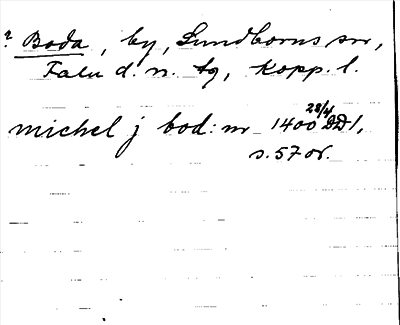 ? Boda, by, Sundborns sn,
Falu d. n. tg, Kopp. l.
28/4
michel j bod: nr 1400 DD 1,
s. 57 or.